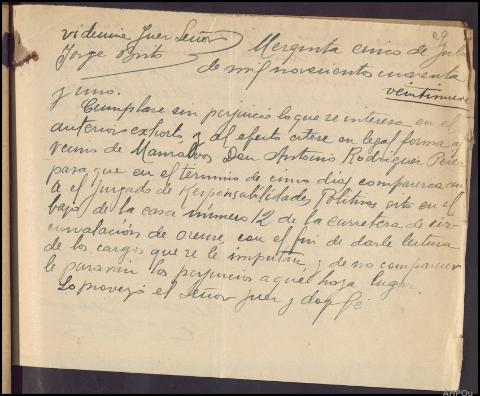 29
videncia Juez Señor
Jorge Brito
Mezquita cinco de Julio
de mil novecientos cuarenta
y uno.
veintinueve
Cumplase sin perjuicio lo que se interesa en el
anterior exhorto y al efecto citese en legal forma al
vecino de Manzalvos Don Antonio Rodriguez Perez
para que en el término de cinco dias comparezca an
te el Juzgado de Responsabilidades Politicas sito en el
bajo de la casa número 12 de la carretera de cir
cunvalación de Orense, con el fin de darle lectura
de los cargos que se le imputan y de no comparecer
le pararán los perjuicios a que haya lugar.
Lo proveyó el Señor Juez y doy fé
AHPOu